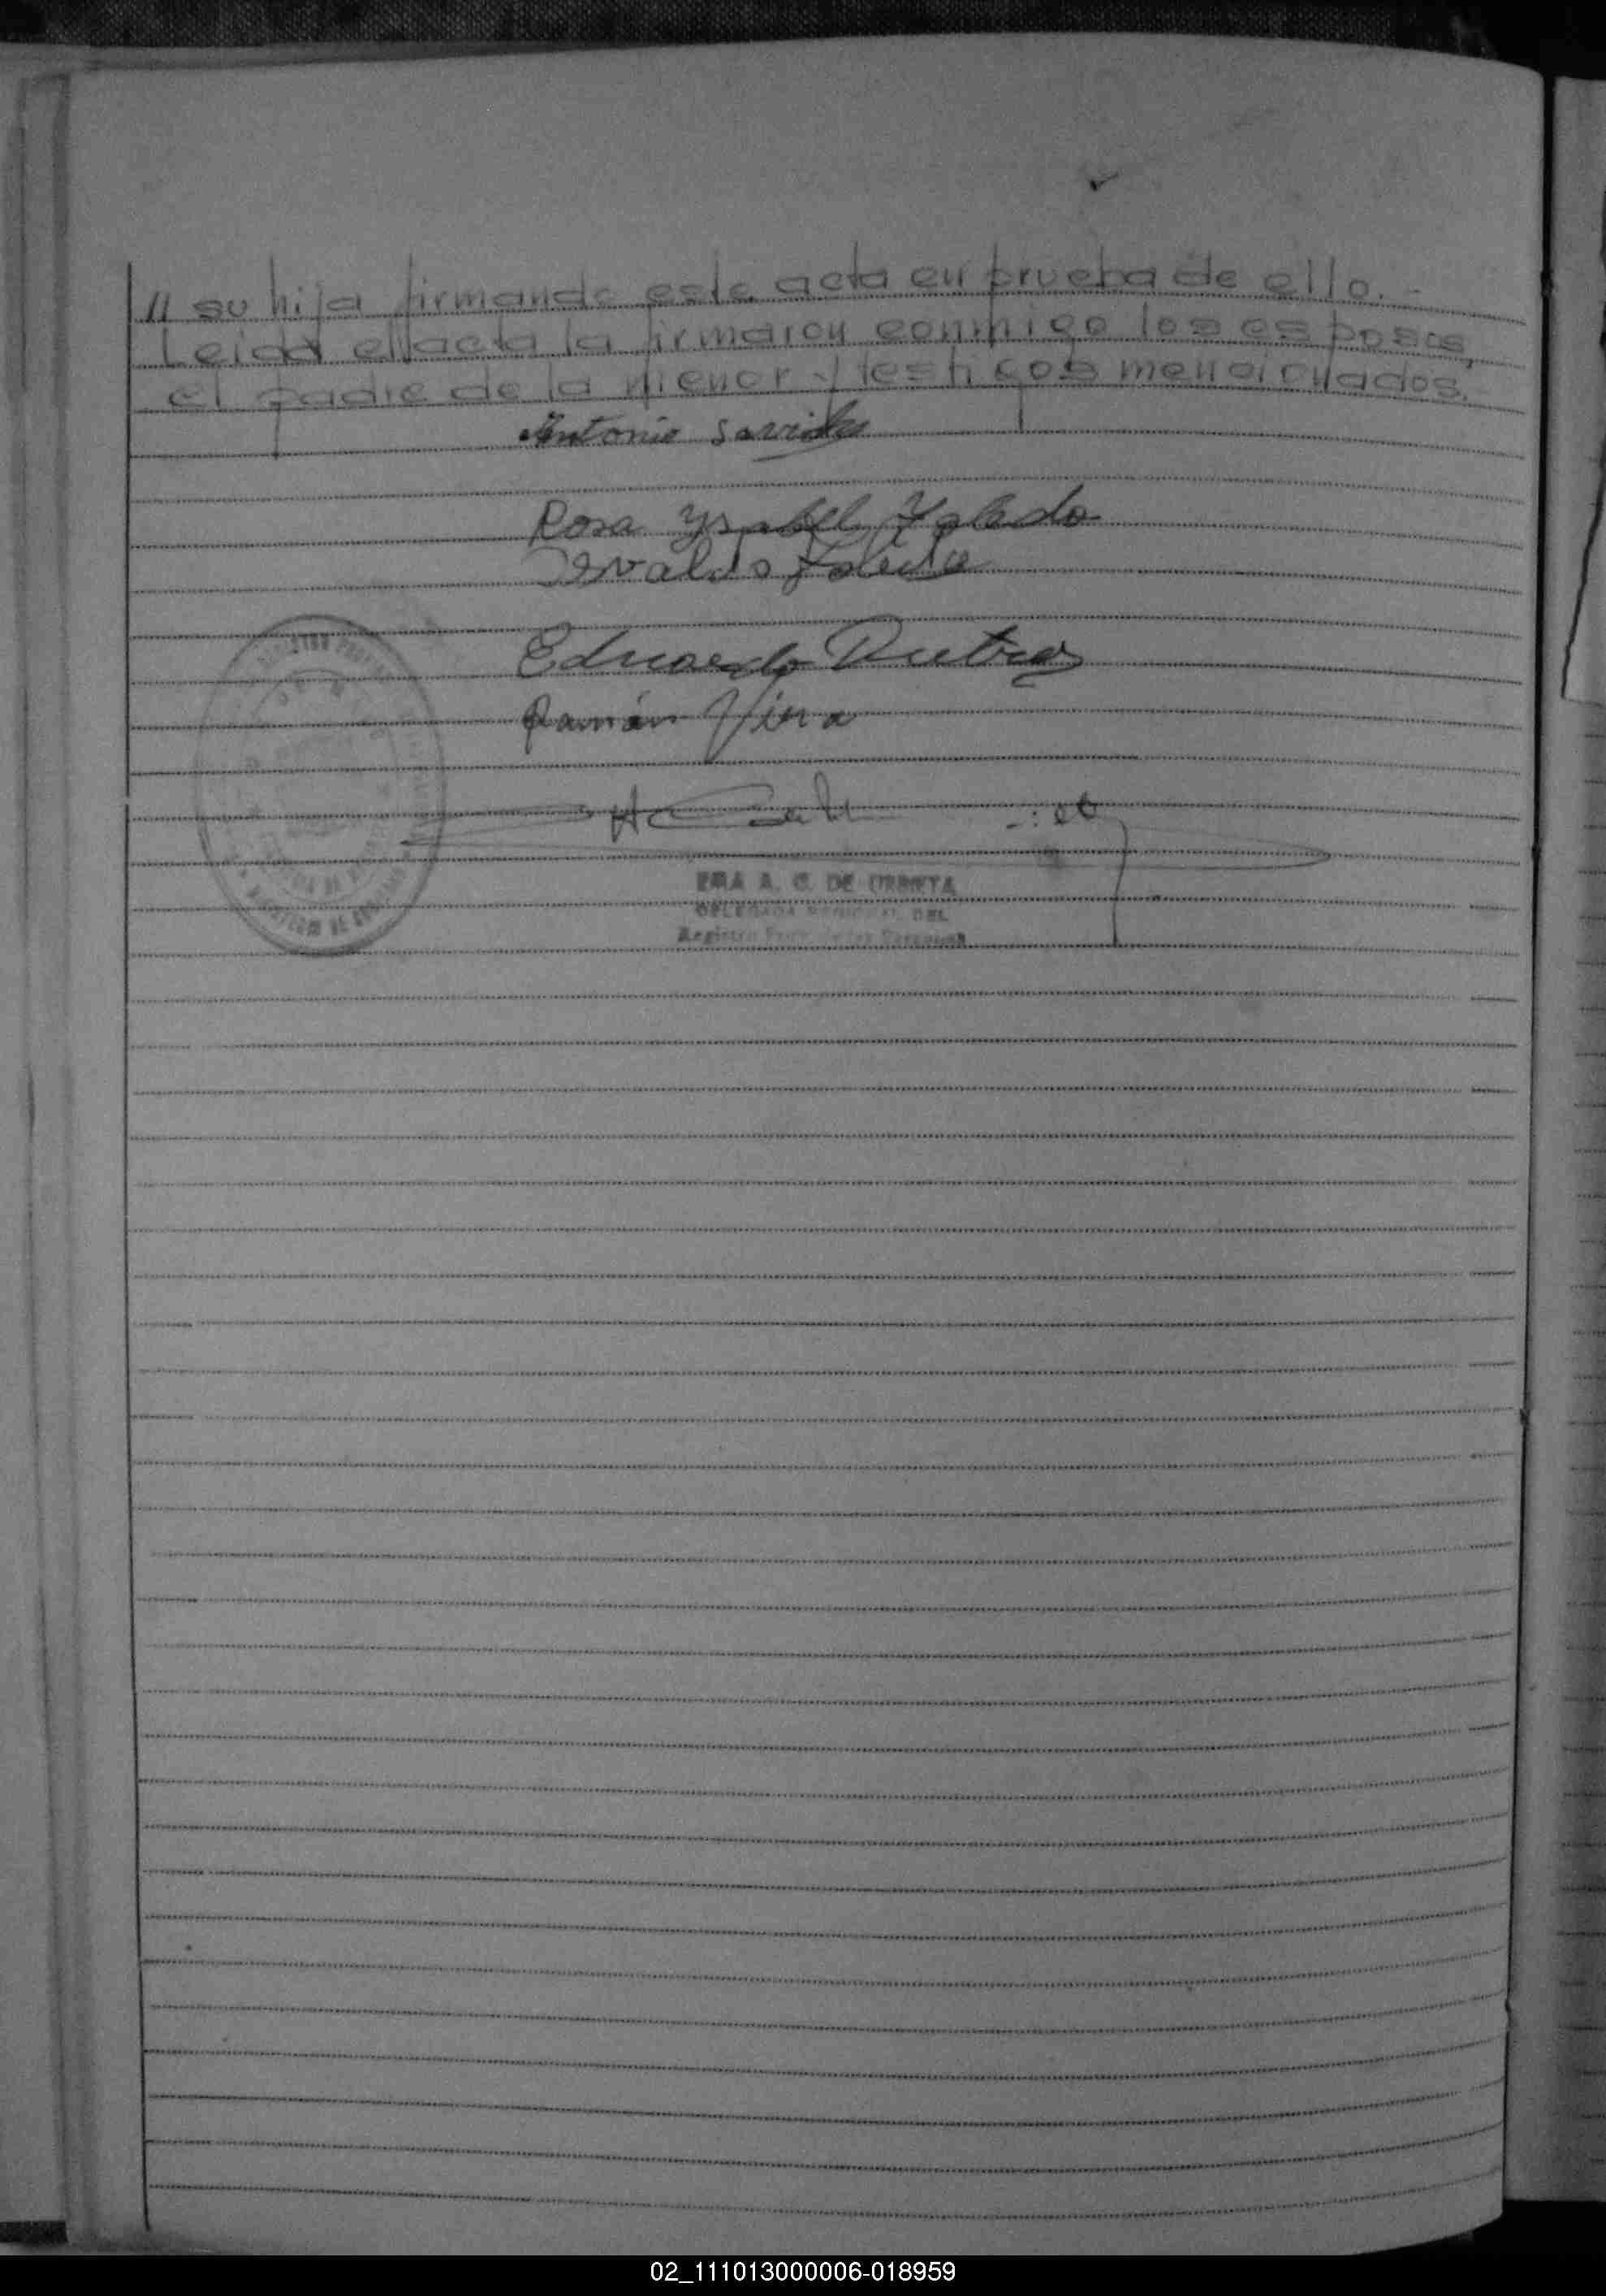 // su hija firmando este acta en prueba de ello. -
Leida el acta la firmaron conmigo los esposos,
el padre de la menor y testigos mencionados.
Antonio
Rosa Ysabel Toledo
Osvaldo Toledo
Eduardo
Ramón Vera
EMA A. G. DE URBIETA
DELEGADA REGIONAL DEL
Registro
02_111013000006-018959